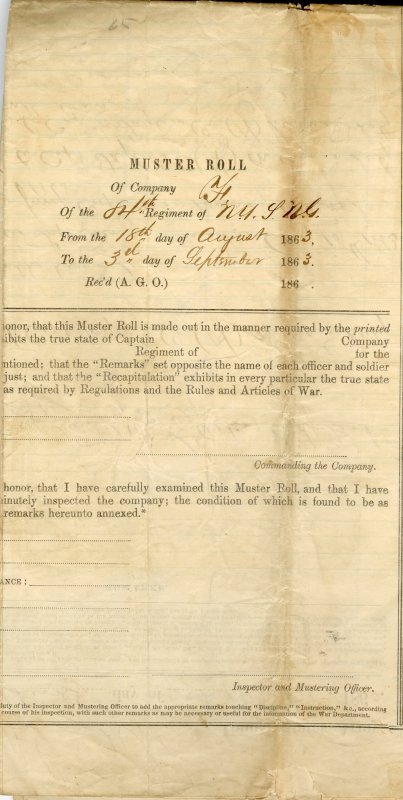 65
MUSTER ROLL
Of Company F
Of the 84th Regiment of N.Y. S. N.G.
From the 18th day of August 1863,
To the 3d day of September 1863.
Rec'd (A. G. O.) 186 .
honor, that this Muster Roll is made out in the manner required by the printed
ibits the true state of Captain Company
Regiment of for the
ntioned; that the "Remarks" set opposite the name of each officer and soldier
just; and that the "Recapitulation" exhibits in every particular the true state
as required by Regulations and the Rules and Articles of War.
Commanding the Company.
honor, that I have carefully examined this Muster Roll, and that I have
inutely inspected the company; the condition of which is found to be as
remarks hereunto annexed.*
ANCE:
Inspector and Mustering Officer.
duty of the Inspector and Mustering Officer to add the appropriate remarks touching "Discipline," "Instruction," &c., according
course of his inspection, with such other remarks as may be necessary or useful for the information of the War Department.